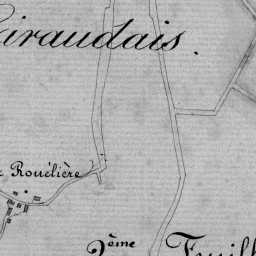 Giraudais.
la Rouëlière
2ème Feuille